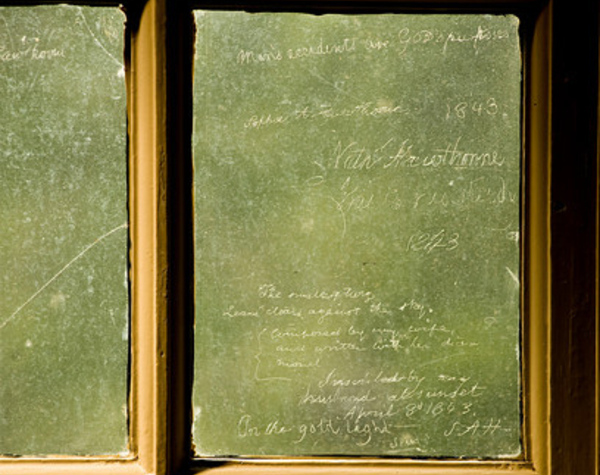 Man's accidents are GOD's purposes
Sophia A. Hawthorne 1843.
Nath^l Hawthorne
This is his study
1843
The smallest twig
Leans clear against the sky.
Composed by my wife,
and written with her dia-
mond
Inscribed by my
husband at sunset
April 3^d 1843.
On the gold light S.A.H.